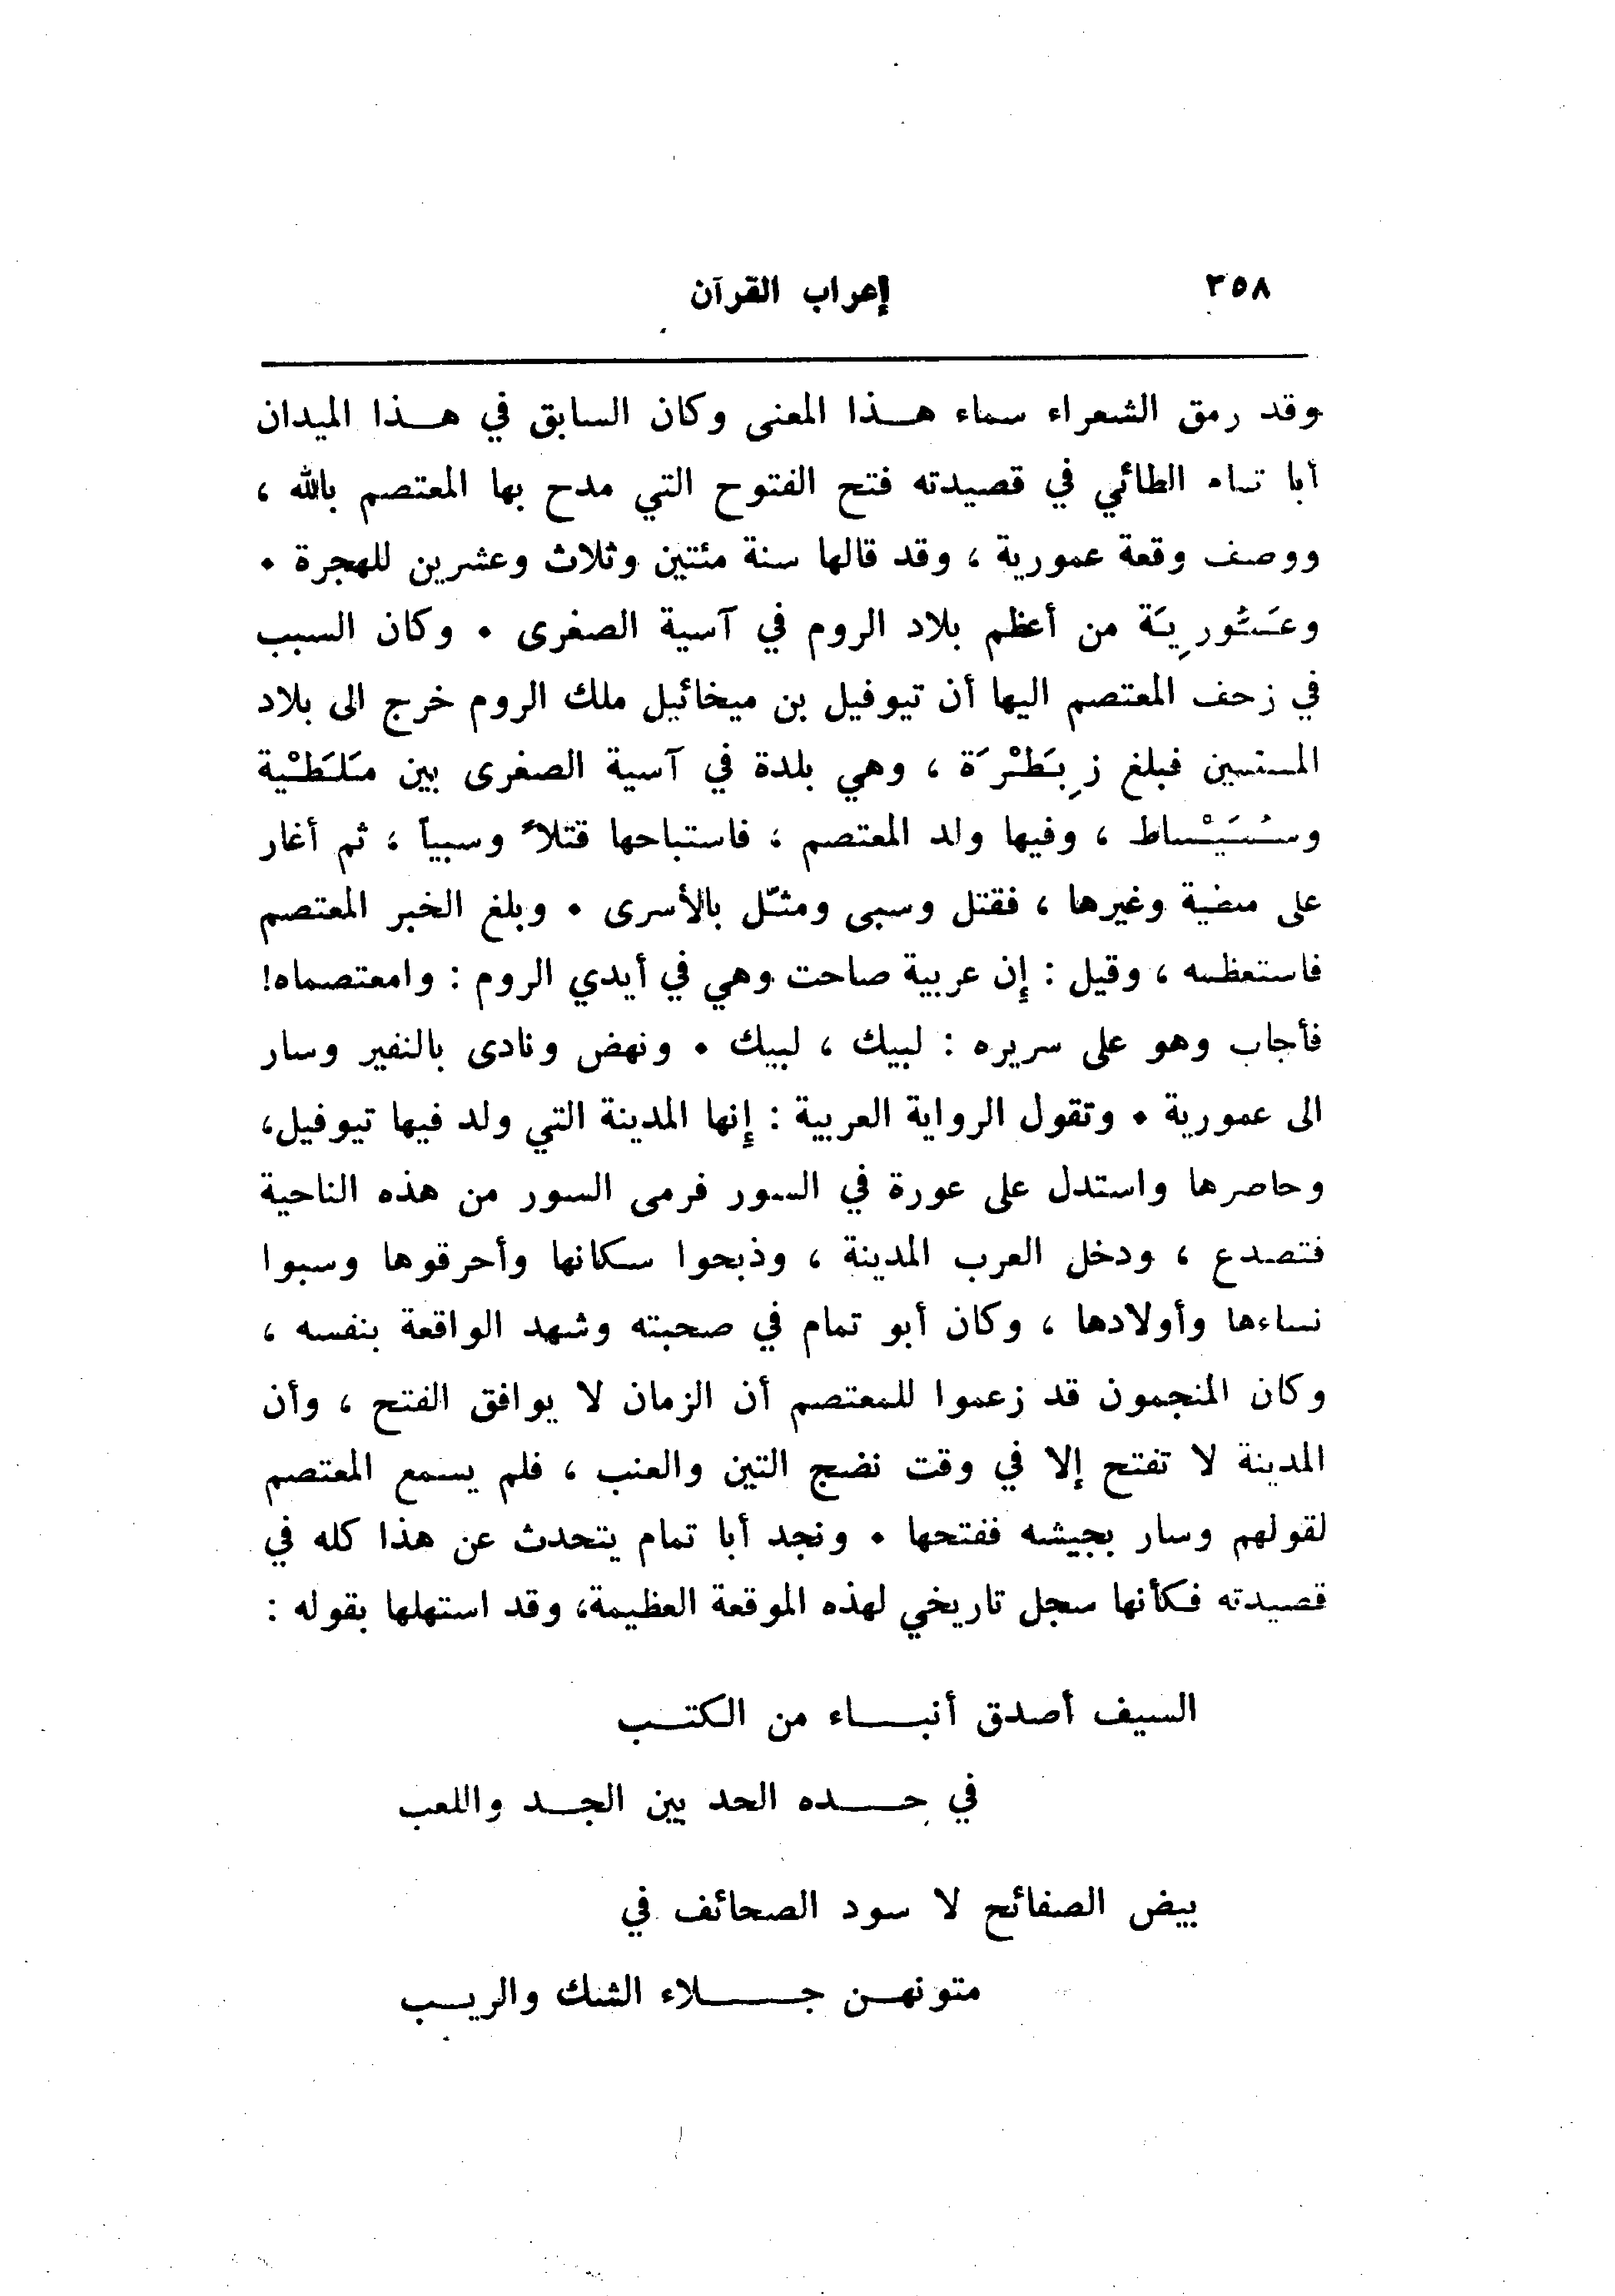 ٣٥٨ إعراب القرآن
وقد رمق الشعراء سماء هذا المعنى وكان السابق في هذا الميدان
أبا تمام الطائي في قصيدته فتح الفتوح التي مدح بها المعتصم بالله ،
ووصف وقعة عمورية ، وقد قالها سنة مئتين وثلاث وعشرين للهجرة .
وعَمُّورِيَة من أعظم بلاد الروم في آسية الصغرى . وكان السبب
في زحف المعتصم اليها أن تيوفيل بن ميخائيل ملك الروم خرج الى بلاد
المسلمين فبلغ زِبَطْرَة ، وهي بلدة في آسية الصغرى بين مَلَطْية
وسُمَيْساط ، وفيها ولد المعتصم ، فاستباحها قتلاً وسبياً ، ثم أغار
على ملطية وغيرها ، فقتل وسبى ومثّل بالأسرى . وبلغ الخبر المعتصم
فاستعظمه ، وقيل : إن عربية صاحت وهي في أيدي الروم : وامعتصماه!
فأجاب وهو على سريره : لبيك ، لبيك . ونهض ونادى بالنفير وسار
الى عمورية . وتقول الرواية العربية : إنها المدينة التي ولد فيها تيوفيل،
وحاصرها واستدل على عورة في السور فرمى السور من هذه الناحية
فتصدع ، ودخل العرب المدينة ، وذبحوا سكانها وأحرقوها وسبوا
نساءها وأولادها ، وكان أبو تمام في صحبته وشهد الواقعة بنفسه ،
وكان المنجمون قد زعموا للمعتصم أن الزمان لا يوافق الفتح ، وأن
المدينة لا تفتح إلا في وقت نضج التين والعنب ، فلم يسمع المعتصم
لقولهم وسار بجيشه ففتحها . ونجد أبا تمام يتحدث عن هذا كله في
قصيدته فكأنها سجل تاريخي لهذه الموقعة العظيمة، وقد استهلها بقوله :
السيف أصدق أنباء من الكتب
في حده الحد بين الجد واللعب
بيض الصفائح لا سود الصحائف في
متونهن جلاء الشك والريب